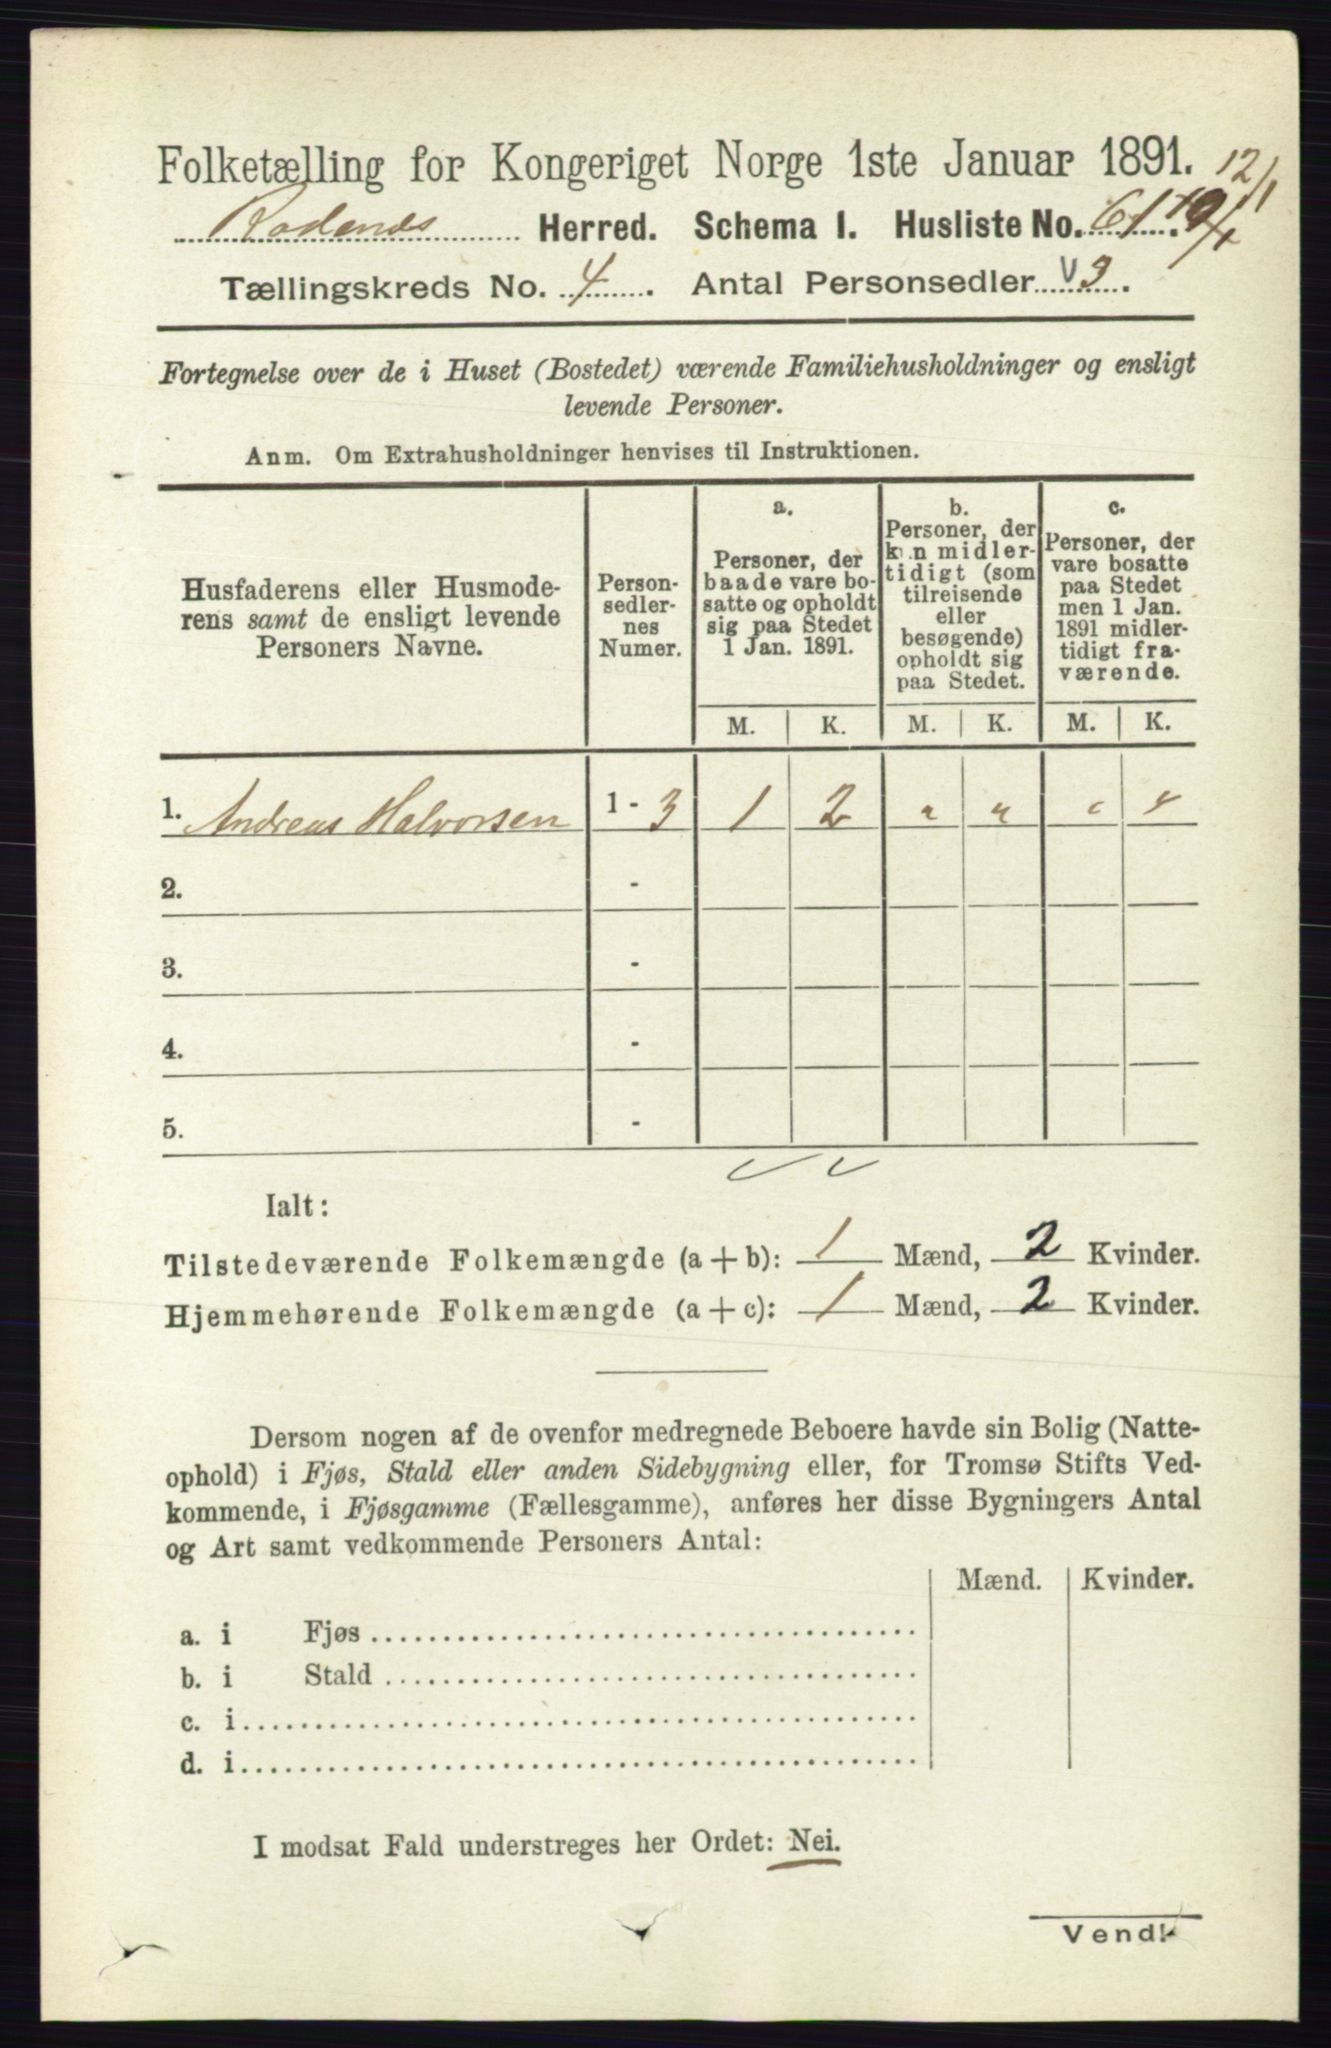 Folketælling for Kongeriget Norge 1ste Januar 1891.
12/1
Rødenes Herred. Schema I. Husliste No. 61.
Tællingskreds No. 4. Antal Personsedler 3.
Fortegnelse over de i Huset (Bostedet) værende Familiehusholdninger og ensligt
levende Personer.
Anm. Om Extrahusholdninger henvises til Instruktionen.
Husfaderens eller Husmode-
rens samt de ensligt levende
Personers Navne.
Person-
sedler-
nes
Numer.
a.
Personer, der
baade vare bo-
satte og opholdt
sig paa Stedet
1 Jan. 1891.
b.
Personer, der
kun midler-
tidigt (som
tilreisende
eller
besøgende)
opholdt sig
paa Stedet.
c.
Personer, der
vare bosatte
paa Stedet
men 1 Jan.
1891 midler-
tidigt fra-
værende.
M. K. M. K. M. K.
1. Andreas Halvorsen 1 - 3 1 2 " " " "
2. -
3. -
4. -
5. -
Ialt:
Tilstedeværende Folkemængde (a + b): 1 Mænd, 2 Kvinder.
Hjemmehørende Folkemængde (a + c): 1 Mænd, 2 Kvinder.
Dersom nogen af de ovenfor medregnede Beboere havde sin Bolig (Natte-
ophold) i Fjøs, Stald eller anden Sidebygning eller, for Tromsø Stifts Ved-
kommende, i Fjøsgamme (Fællesgamme), anføres her disse Bygningers Antal
og Art samt vedkommende Personers Antal:
Mænd. Kvinder.
a. i Fjøs
b. i Stald
c. i
d. i
I modsat Fald understreges her Ordet: Nei.
Vend!